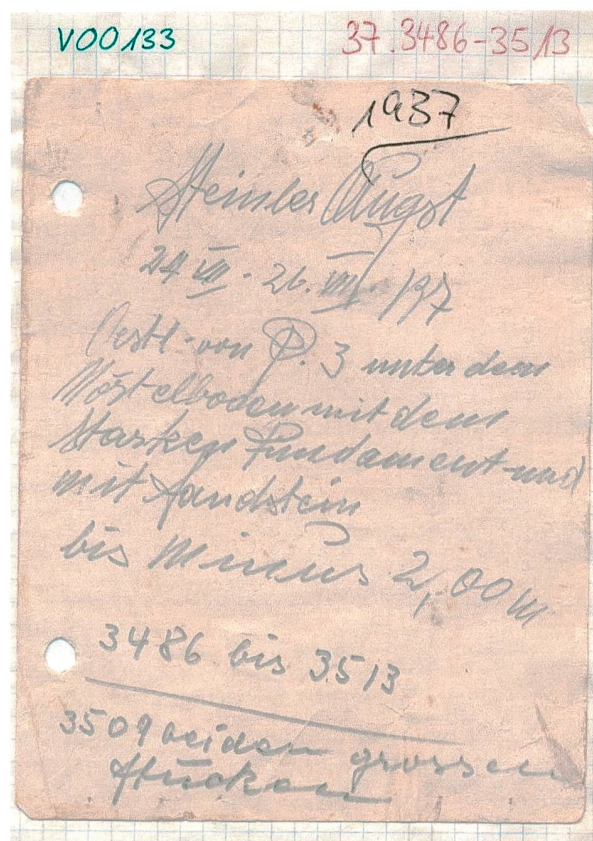 V00133
37.3486-3513
1937
Steinler Augst
24 VIII. 26. VIII. 1937
Oestl. von P. 3 unter dem
Mörtelboden mit dem
starken Fundament und
mit Sandstein
bis Minus 2,00 m
3486 bis 3513
3509 bei den grossen
Stücken